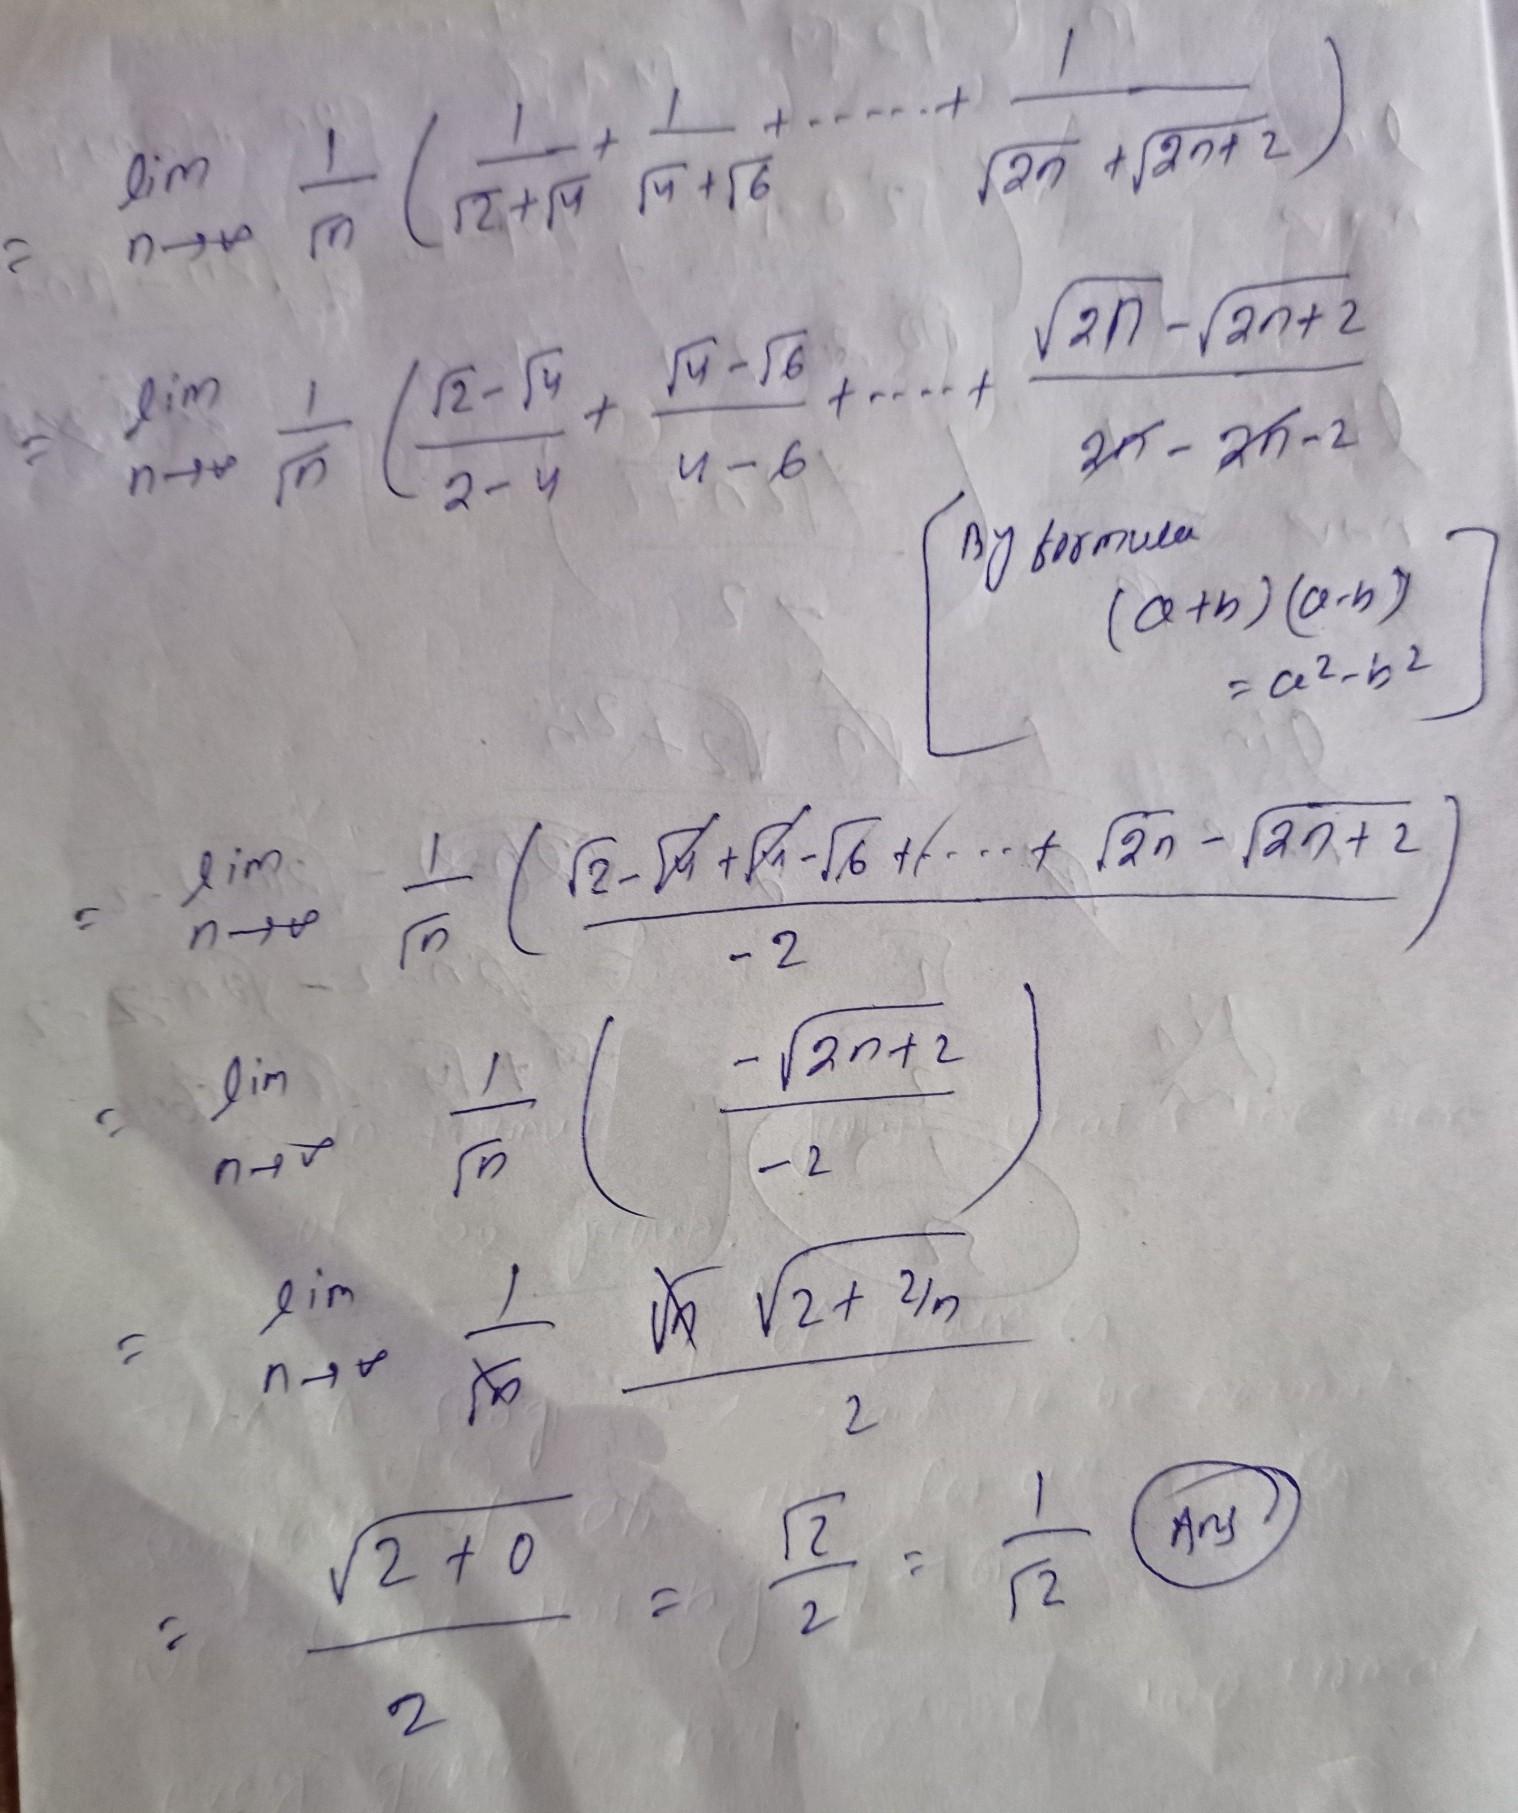 = lim n→∞ 1/√n ( 1/(√2+√4) + 1/(√4+√6) + ...... + 1/(√2n + √(2n+2)) )
= lim n→∞ 1/√n ( (√2-√4)/(2-4) + (√4-√6)/(4-6) + ..... + (√2n - √(2n+2))/(2n-2n-2)
[By formula
(a+b)(a-b)
= a²-b²]
= lim n→∞ 1/√n ( (√2-√4+√4-√6+.....+ √2n - √(2n+2))/-2 )
= lim n→∞ 1/√n ( -√(2n+2)/-2 )
= lim n→∞ 1/√n √n √(2+2/n)/2
= √(2+0)/2 = √2/2 = 1/√2 Ans